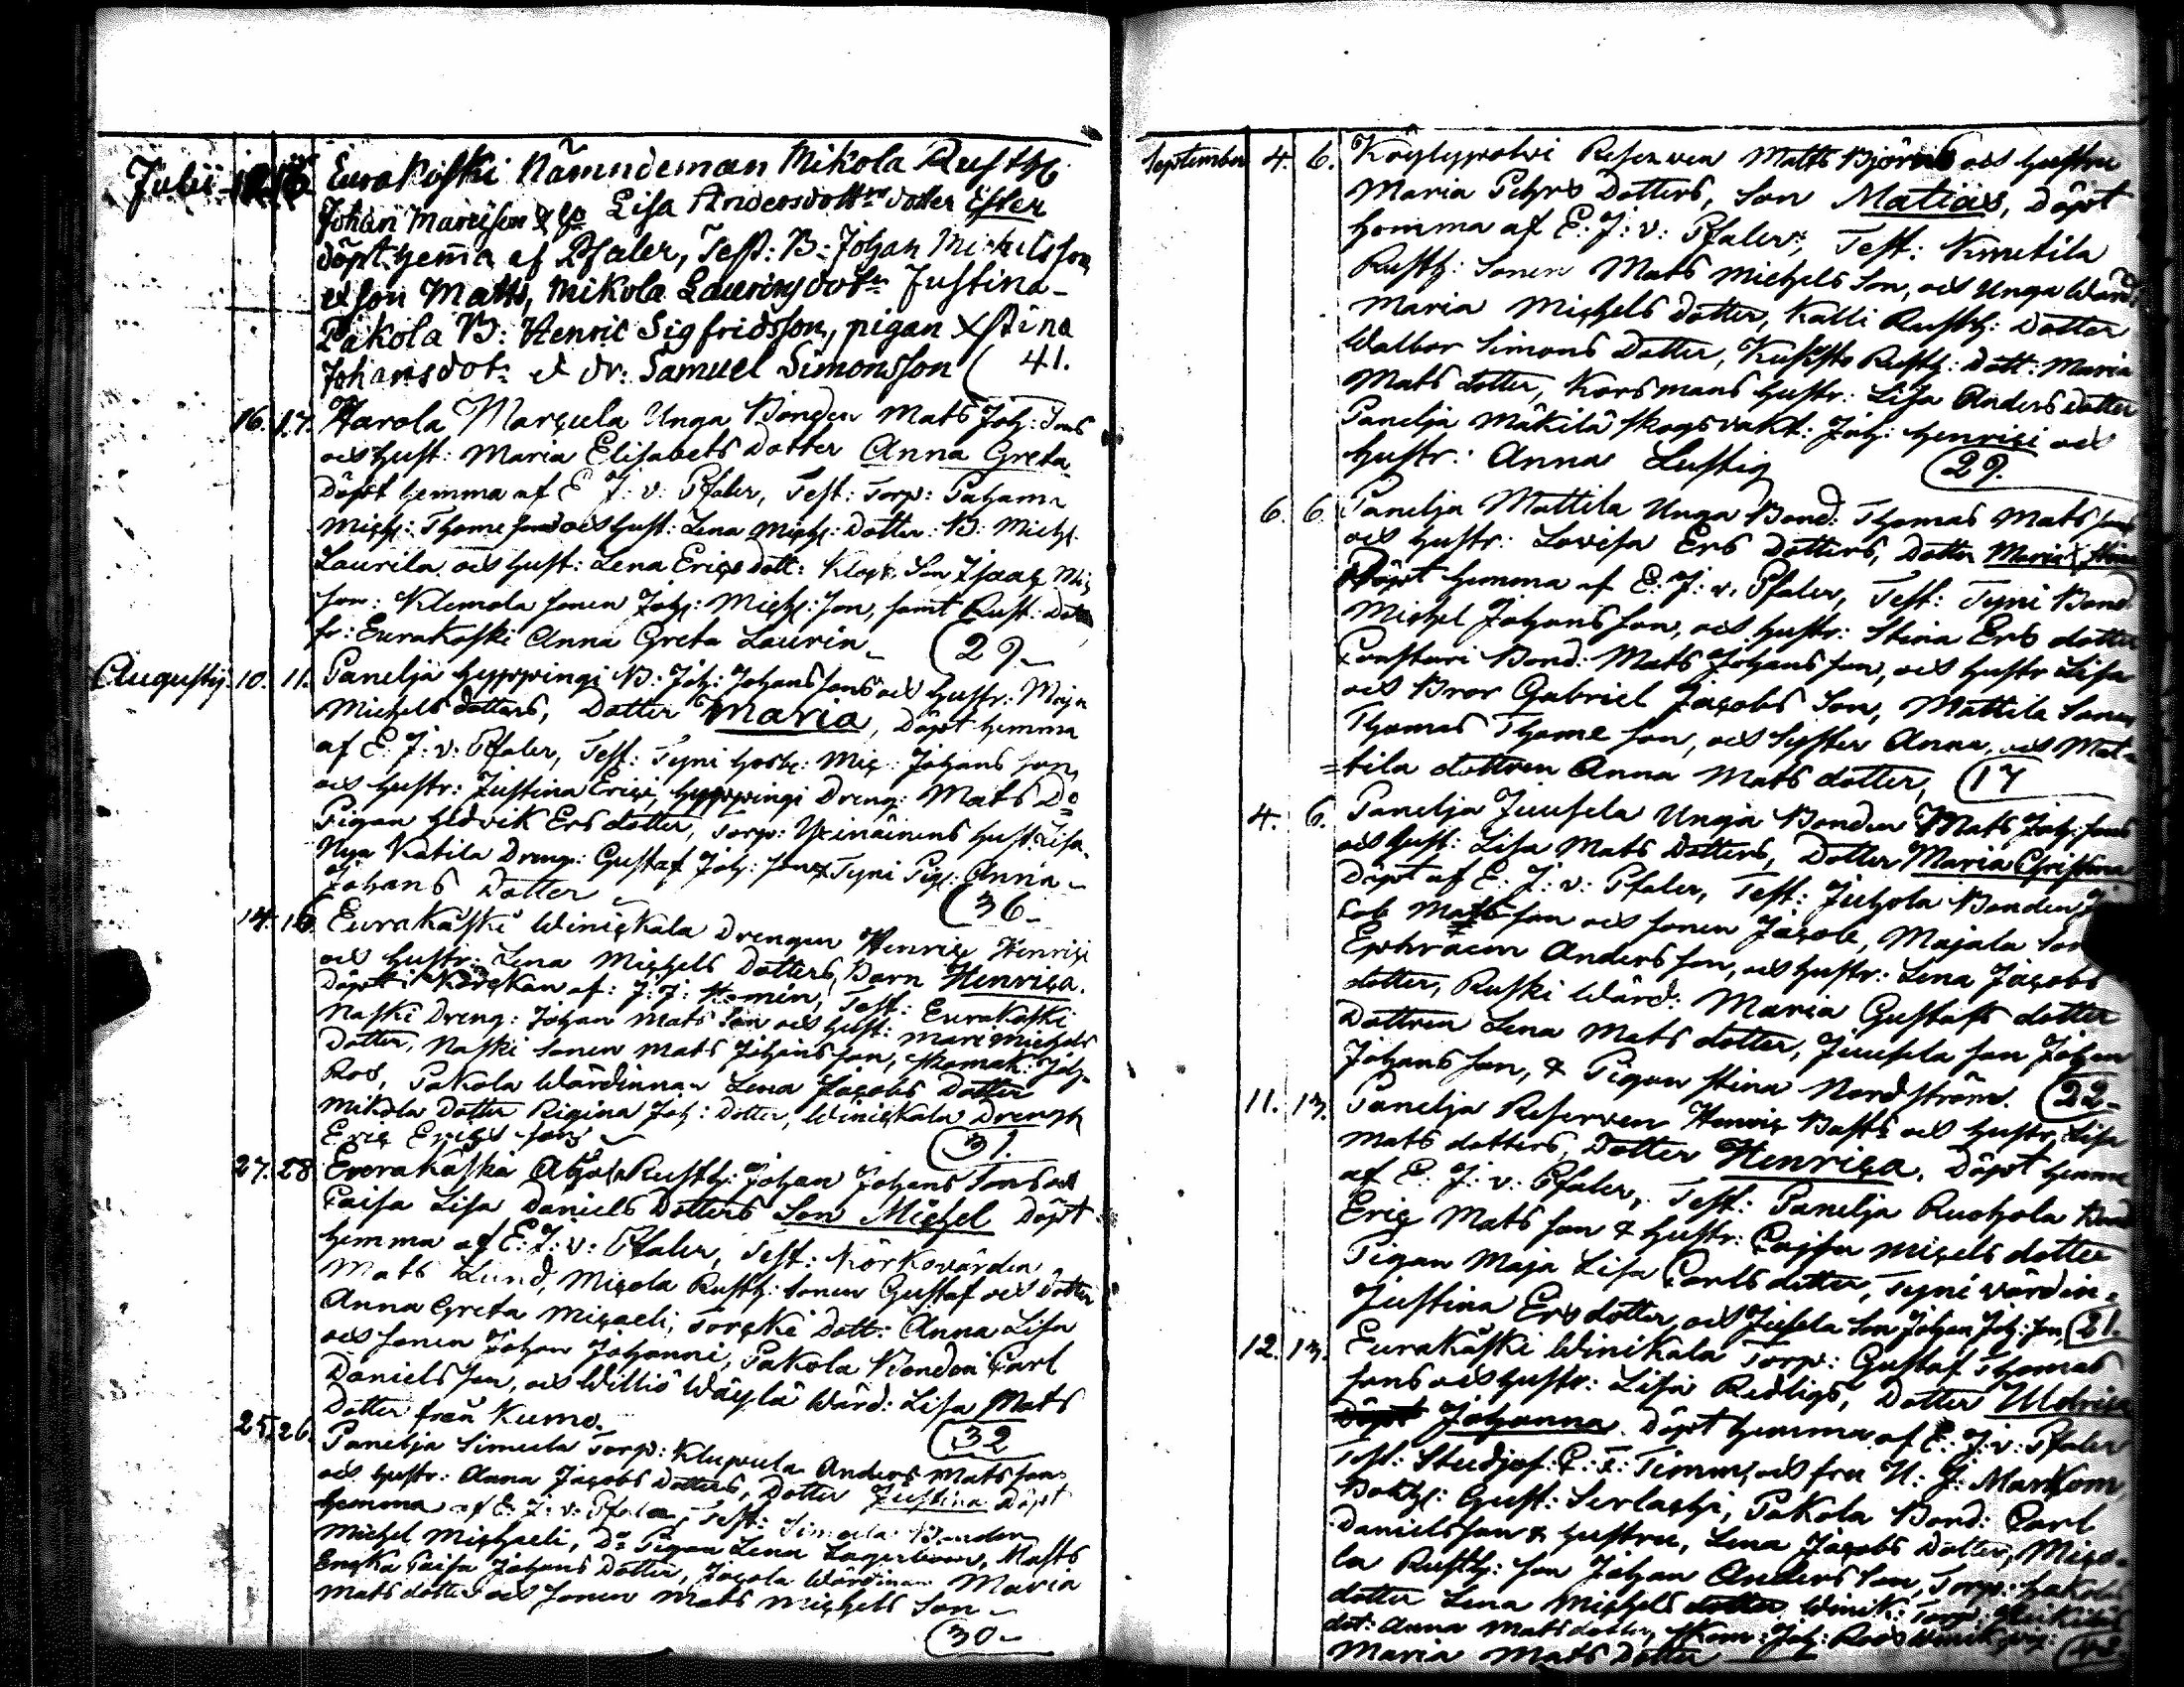 Julii Eurakoski Nämndeman Mikola Rusth:
Johan Marcisson & h: Lisa Andersdottrs dotter Ester
döpt hema af Pfaler, Test: B: Johan Michelsson
et son Matts, Mikola Laurinsdotr Justina
Pakola B: Henric Sigfridsson, pigan Xstina
Johansdotr et dr: Samuel Simonsson (41.
16. 17. Harola Marcula Unga Bonden Mats Joh: Sons
och Hust: Maria Elisabets Dotter Anna Greta
Döpt hemma af E J: v: Pfaler, Test: Torp: Pahama
Mich: Thome son och Hust: Lena Mich: Dotter: B: Mich:
Laurila och Hust: Lena Erics Dott: Klock: Son Isaac
son: Klemola sonen Joh: Mich: son, samt Rust: Dotter
fr: Eurakoski Anna Greta Laurin (29.
Augusty. 10. 11. Panelja Hyppingi B: Joh: Johans sons och Hustr: Maja
Michels dotters, Dotter Maria, Döpt hemma
af E: J: v: Pfaler, Test: Tyni Mic: Johans son,
och Hustr: Justina Erici, Hyppingi Dreng: Mats Do
Pigan Hedvik Ersdotter, Torp: Hust: Lisa
Nya Katila Dreng: Gustaf Joh: son & Tyni Pig: Anna
Johans Dotter (36.
14. 16. Eurakåski Winickala Drengen Henric Henrici
och Hustr: Lena Michels Dotters, Barn Henrica.
Döpt i Körckan af: J: J: Test: Eurakoski
Naski Dreng: Johan Mats Son och Hust: Mari Michels
Dotter, Naski Sonen Mats Johans son, Skomak: Joh:
Ros, Pakola Wärdinnan Lena Jacobs Dotter
Mikola Dotter Rigina Joh: Dotter, Winickala Dreng
Eric Erics son (31.
27. 28. Eurakåski Rusth: Johan Johans Sons och
Caisa Lisa Daniels Dotters Son Michel Döpt
hemma af E: J: v: Pfaler, Test: Körkovärden
Mats Lund, Micola Rusth: Sonen Gustaf och Dotter
Anna Greta Micaeli, Torcki Dott: Anna Lisa
och Sonen Johan Johanni, Pakola Bonden Carl
Daniels son, och Willio Wäylä Wärd: Lisa Mats
Dotter från Kumo. (32
25. 26. Panelja Simula Torp: Anders Mats sons
och Hustr: Anna Jacobs Dotters, Dotter Justina Döpt
hemma af E: J: v: Pfaler, Test: Simula Bonden
Michel Michaeli, Do Pigan Lena Matts
Encka Caisa Johans Dotter, Jacola Wärdinan Maria
Mats dotter och Sonen Mats Michels Son
(30.
September 4. 6. Köylypolvi Reserven Matts Björn och Hustru
Maria Pehrs Dotters, Son Matias, Döpt
hemma af E: J: v: Pfaler, Test:
Rusth: Sonen Mats Michels Son, och Unga Wärd:
Maria Michels Dotter, Kalli Rusth: Dotter
Walbor Simons Dotter, Rusth: Dott: Maria
Mats dotter, Korsmans Hustr: Lisa Anders dotter
Panelja Mäkilä Skogsvakt: Joh: Henrici och
Hustr: Anna Lustig (29.
6. 6. Panelja Mattila Unga Bond: Thomas Mats sons
och Hustr: Lovisa Ers Dotters, Dotter Maria Stina
Döpt hemma af E: J: v: Pfaler, Test: Tyni Bond:
Michel Johans son, och Hustr: Stina Ers dotter
Constari Bond: Mats Johans son, och Hustr Lisa
och Bror Gabriel Jacobs Son, Mattila Sonen
Thomas Thome son, och Syster Anna, och Mat-
=tila dottren Anna Mats dotter, (17
4. 6. Panelja Juusela Unga Bonden Mats Joh: sons
och Hust: Lisa Mats Dotters, Dotter Maria Christina
Döpt af E: J: v: Pfaler, Test: Juhola Bonden Ja-
cob Mats son och Sonen Jacob, Majala Son
Ephraim Anders son, och Hustr: Lena Jacobs
dotter, Ruski Wärd: Maria Gustafs dotter
Dottren Lena Mats dotter, Juusela son Johan
Johans son, & Pigan Stina Nordström. (22.
11. 13. Panelja Reserven Henric Basts och Hustr Lisa
Mats dotters, Dotter Henrica, Döpt hemma
af E: J: v: Pfaler, Test: Panelja Ruohola
Eric Mats son & Hustr: Cajsa Micels dotter
Pigan Maja Lisa Carls dotter, Tyni värdin:
Justina Ersdotter, och Jusela Son Johan Joh: son, (21.
12. 13. Eurakåski Winikala Torp: Gustaf Thomas
sons och Hustr: Lisa Redligs, Dotter Ulrica
Johanna. Döpt hemma af E: J: v: Pfaler
Test: C: F: och fru U: G:
Bokh: Gust: Serlachi, Pakola Bond: Carl
Danielsson & Hustru, Lena Jacobs Dotter, Mico-
la Rusth: son Johan Anders Son, Torp:
dotter Lena Michels dotter, Winik: Torp:
dot: Anna Matsdotter, Skom: Joh: Roos
Maria Mats Dotter (42.